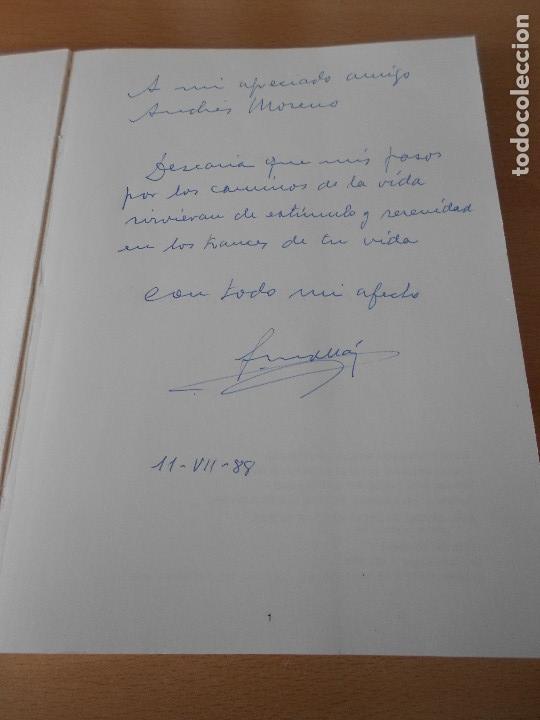 A mi apreciado amigo
Andrés Moreno
Desearia que mis pasos
por los caminos de la vida
sirvieran de estímulo y serenidad
en los trances de tu vida
con todo mi afecto
11-VII-88
1
todocoleccion